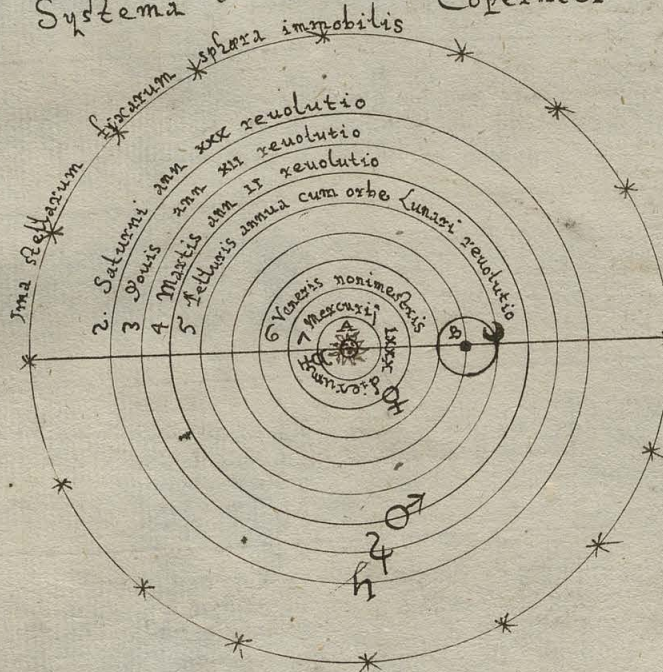 Systema Copernici
Ima stellarum fixarum sphæra immobilis
2. Saturni ann xxx reuolutio
3 Jouis ann xII reuolutio
4 Martis ann II reuolutio
5 Telluris annua cum orbe Lunari reuolutio
6 Veneris nonimestris
7 Mercurij Lxxx dierum
A
B
♀
♂
♃
♄